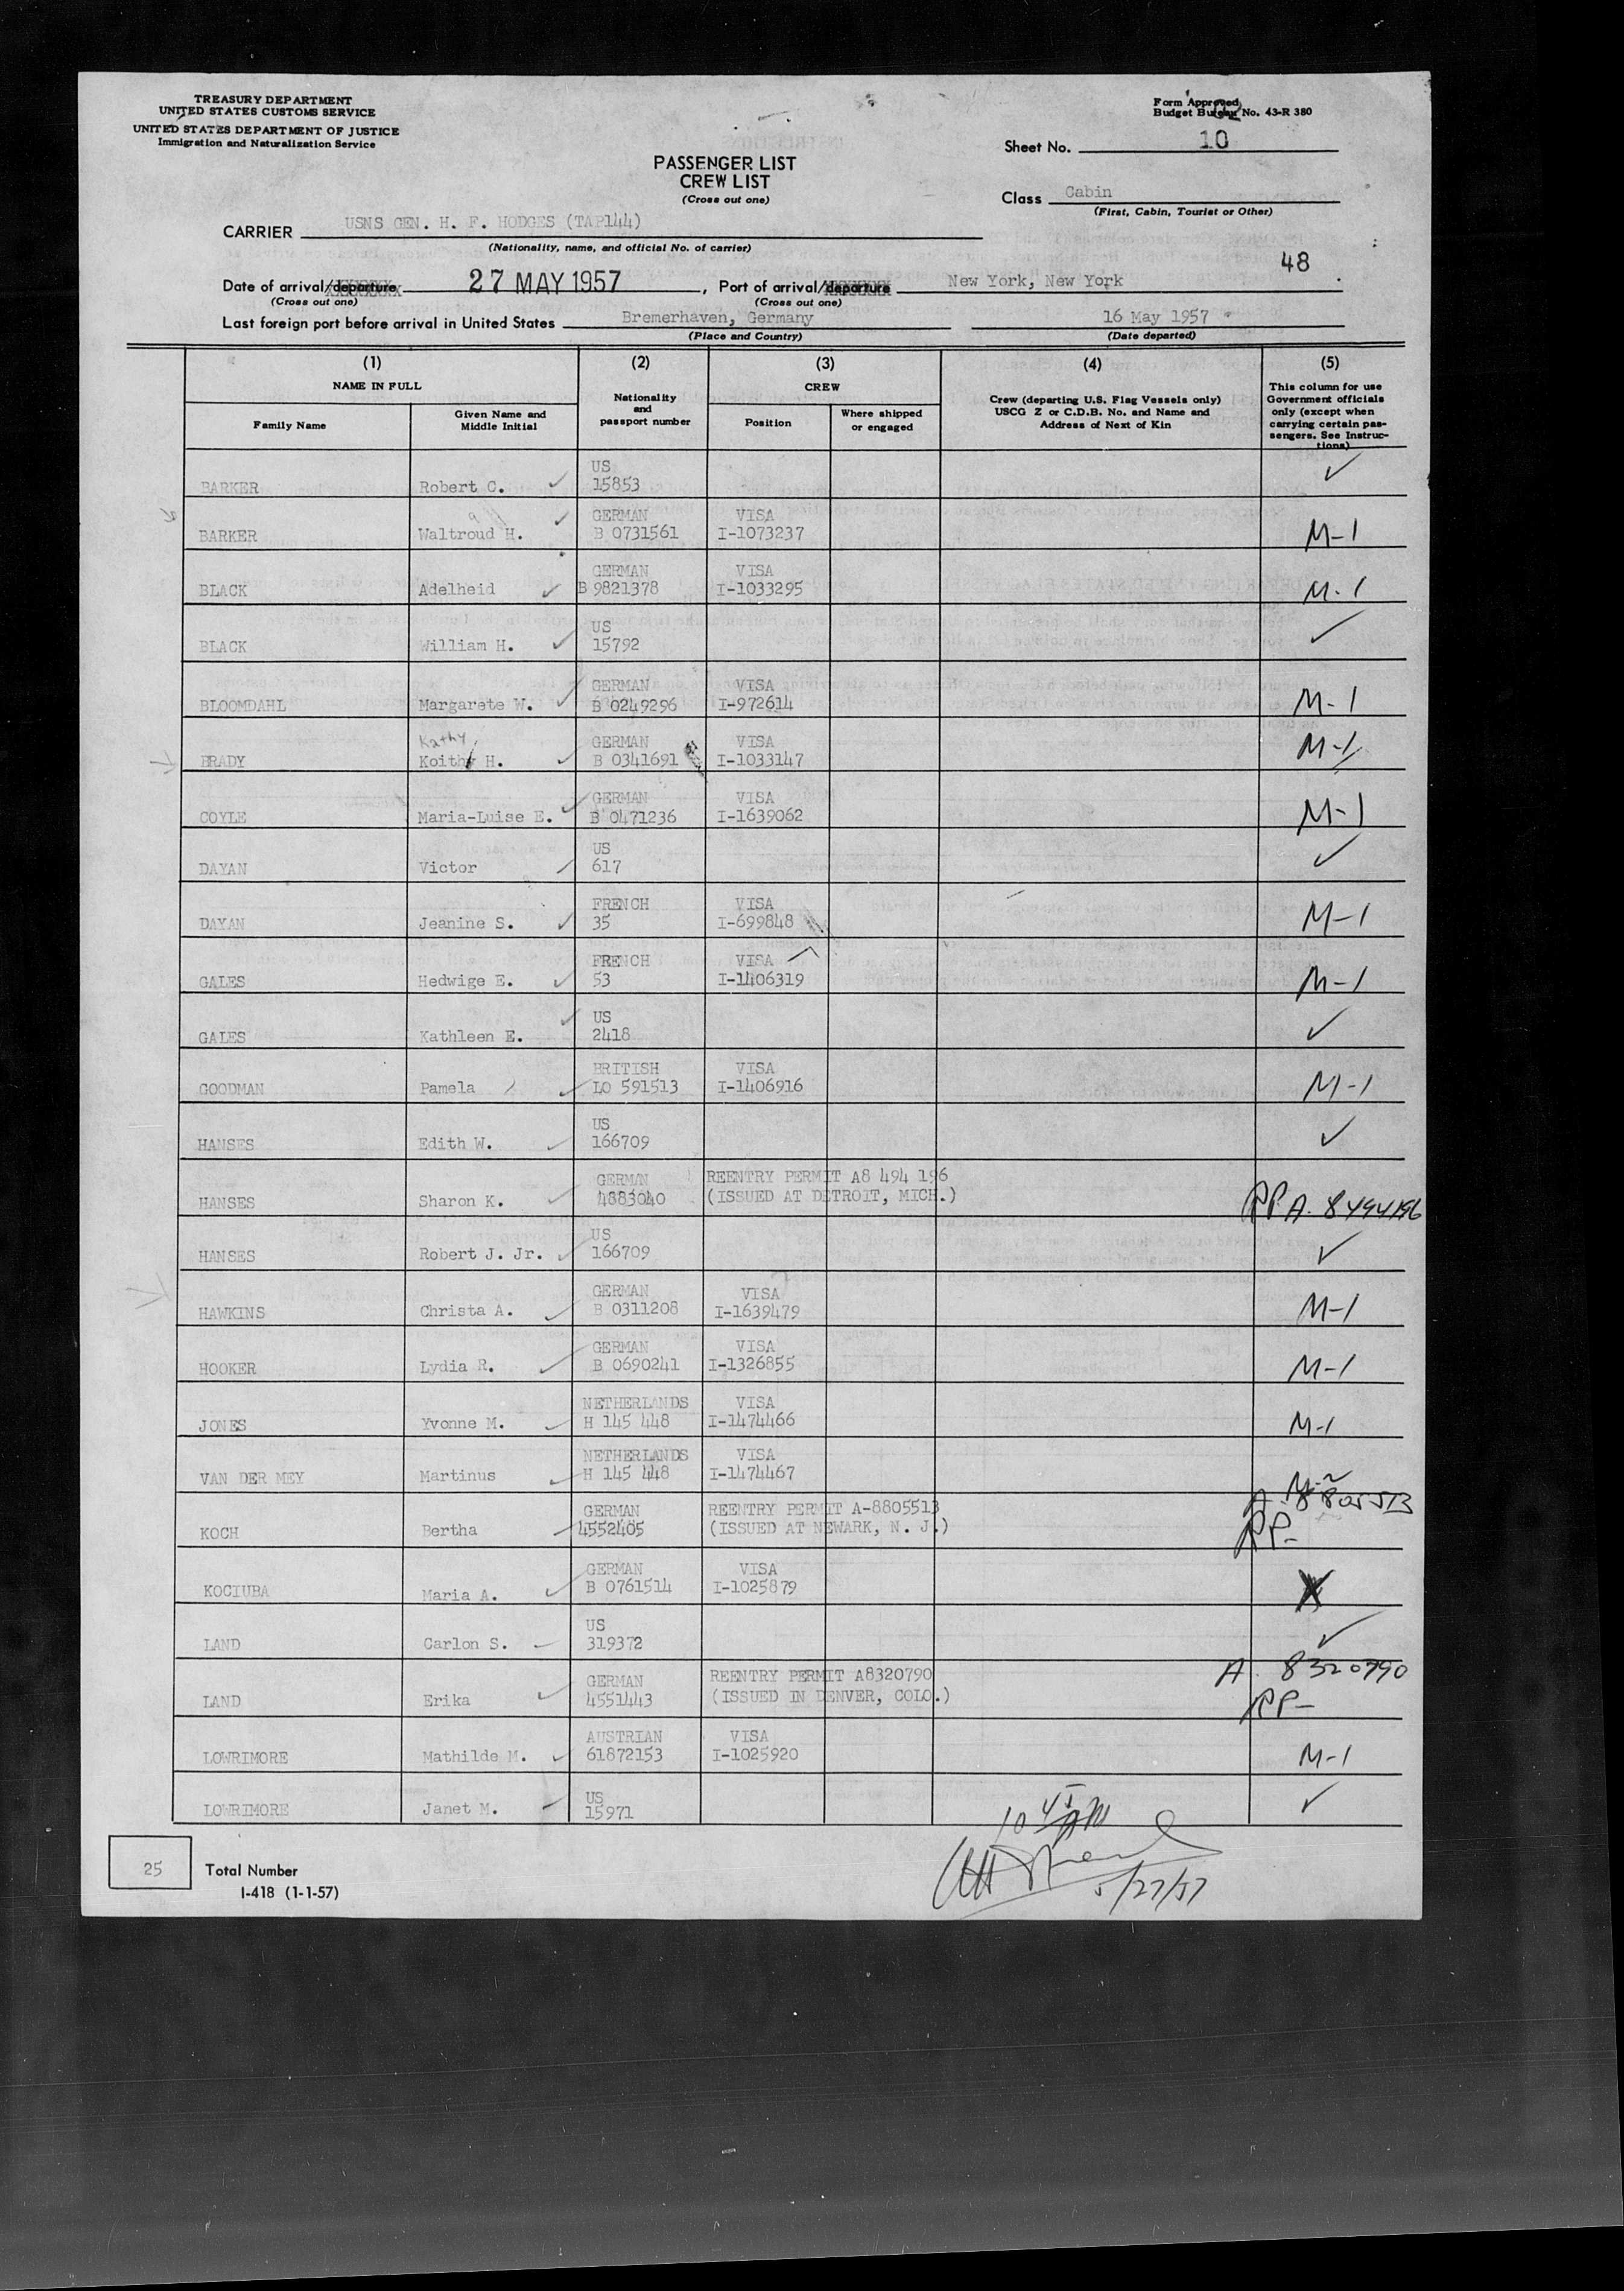 TREASURY DEPARTMENT
UNITED STATES CUSTOMS SERVICE
UNITED STATES DEPARTMENT OF JUSTICE
Immigration and Naturalization Service
Form Approved
Budget Bureau No. 43-R 380
Sheet No. 10
PASSENGER LIST
CREW LIST
(Cross out one)
Class Cabin
(First, Cabin, Tourist or Other)
CARRIER USNS GEN. H. F. HODGES (TAP144)
(Nationality, name, and official No. of carrier)
48
Date of arrival/departure 27 MAY 1957, Port of arrival/departure New York, New York.
(Cross out one) (Cross out one)
Last foreign port before arrival in United States Bremerhaven, Germany 16 May 1957
(Place and Country) (Date departed)
(1) (2) (3) (4) (5)
NAME IN FULL
Family Name
Given Name and Middle Initial
Nationality and passport number
CREW
Position
Where shipped or engaged
Crew (departing U.S. Flag Vessels only)
USCG Z or C.D.B. No. and Name and
Address of Next of Kin
This column for use
Government officials
only (except when
carrying certain pas-
sengers. See Instruc-
tions)
US
BARKER Robert C. ✓ 15853 ✓
GERMAN VISA
BARKER Waltroud H. ✓ B 0731561 I-1073237 M-1
GERMAN VISA
BLACK Adelheid ✓ B 9821378 I-1033295 M-1
US
BLACK William H. ✓ 15792 ✓
GERMAN VISA
BLOOMDAHL Margarete W. ✓ B 0249296 I-972614 M-1
Kathy GERMAN VISA
BRADY Koithy H. ✓ B 0341691 I-1033147 M-1
GERMAN VISA
COYLE Maria-Luise E. ✓ B 0471236 I-1639062 M-1
US
DAYAN Victor ✓ 617 ✓
FRENCH VISA
DAYAN Jeanine S. ✓ 35 I-699848 M-1
FRENCH VISA
GALES Hedwige E. ✓ 53 I-1406319 M-1
US
GALES Kathleen E. ✓ 2418 ✓
BRITISH VISA
GOODMAN Pamela ✓ LO 591513 I-1406916 M-1
US
HANSES Edith W. ✓ 166709 ✓
GERMAN REENTRY PERMIT A8 494 196
HANSES Sharon K. ✓ 4883040 (ISSUED AT DETROIT, MICH.) RP A. 8494196
US
HANSES Robert J. Jr. ✓ 166709 ✓
GERMAN VISA
HAWKINS Christa A. ✓ B 0311208 I-1639479 M-1
GERMAN VISA
HOOKER Lydia R. ✓ B 0690241 I-1326855 M-1
NETHERLANDS VISA
JONES Yvonne M. ✓ H 145 448 I-1474466 M-1
NETHERLANDS VISA
VAN DER MEY Martinus ✓ H 145 448 I-1474467 M-2
GERMAN REENTRY PERMIT A-8805513 A. 8805513
KOCH Bertha ✓ 4552405 (ISSUED AT NEWARK, N. J.) RP-
GERMAN VISA
KOCIUBA Maria A. ✓ B 0761514 I-1025879
US
LAND Carlon S. ✓ 319372 ✓
GERMAN REENTRY PERMIT A8320790 A. 8320790
LAND Erika ✓ 4551443 (ISSUED IN DENVER, COLO.) RP-
AUSTRIAN VISA
LOWRIMORE Mathilde M. ✓ 61872153 I-1025920 M-1
US
LOWRIMORE Janet M. ✓ 15971 ✓
10 45 AM
5/27/57
25 Total Number
I-418 (1-1-57)